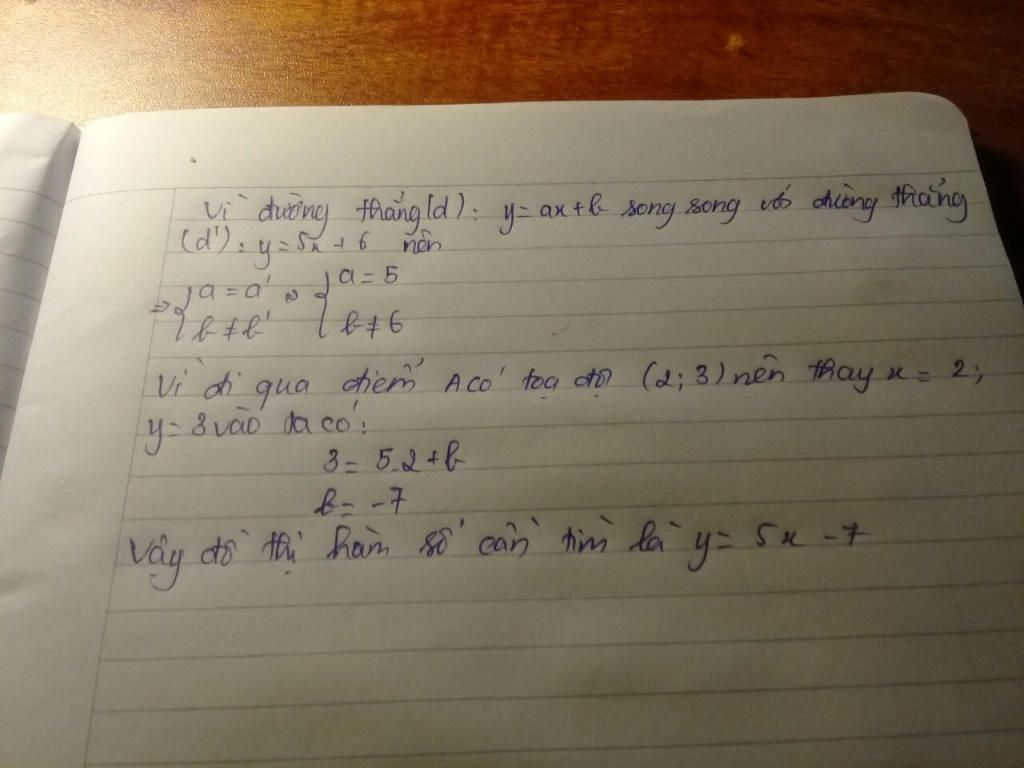 Vì đường thẳng (d): y = ax + b song song với đường thẳng
(d'): y = 5x + 6 nên
=> { a = a' => { a = 5
{ b ≠ b' { b ≠ 6
Vì đi qua điểm A có toạ độ (2; 3) nên thay x = 2;
y = 3 vào ta có:
3 = 5.2 + b
b = -7
Vậy đồ thị hàm số cần tìm là y = 5x - 7